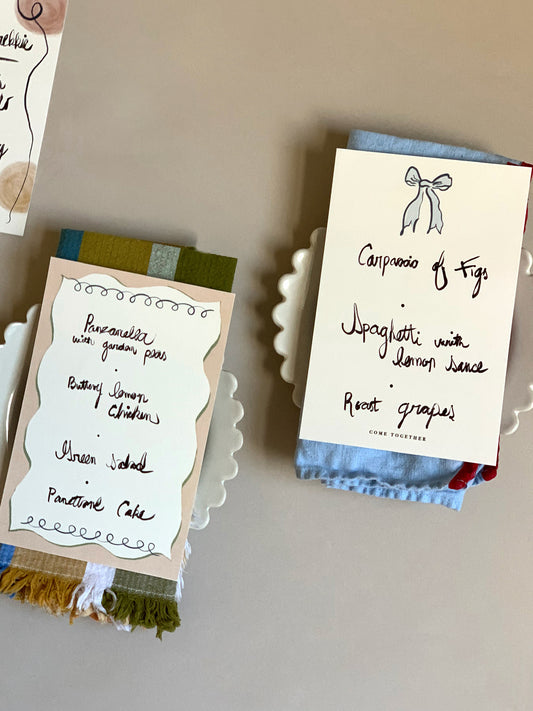 Panzanella
with garden peas
Buttery lemon
Chicken
Green Salad
Panettone Cake
Carpaccio of Figs
Spaghetti with
lemon sauce
Roast grapes
COME TOGETHER